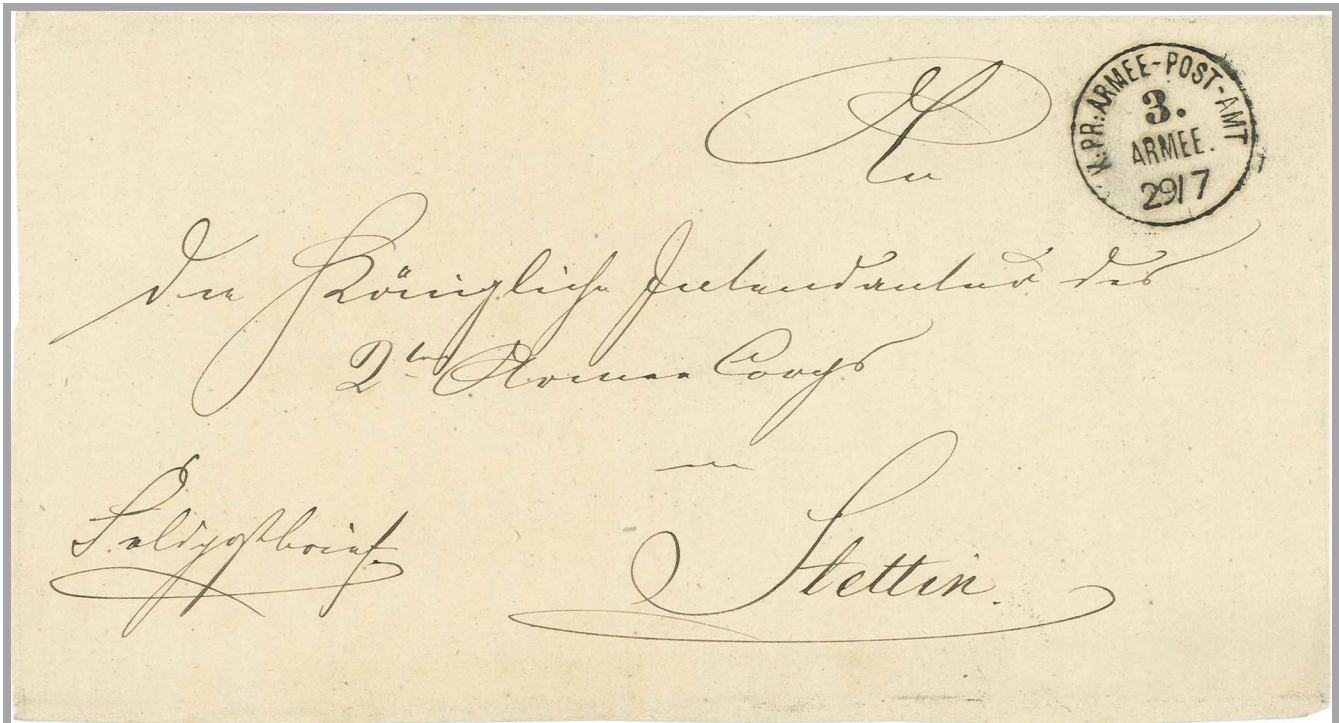 An
K: PR: ARMEE-POST-AMT
3.
ARMEE.
29/7
die Königliche Intendantur des
2ten Armee Corps
in
Stettin.
Feldpostbrief.